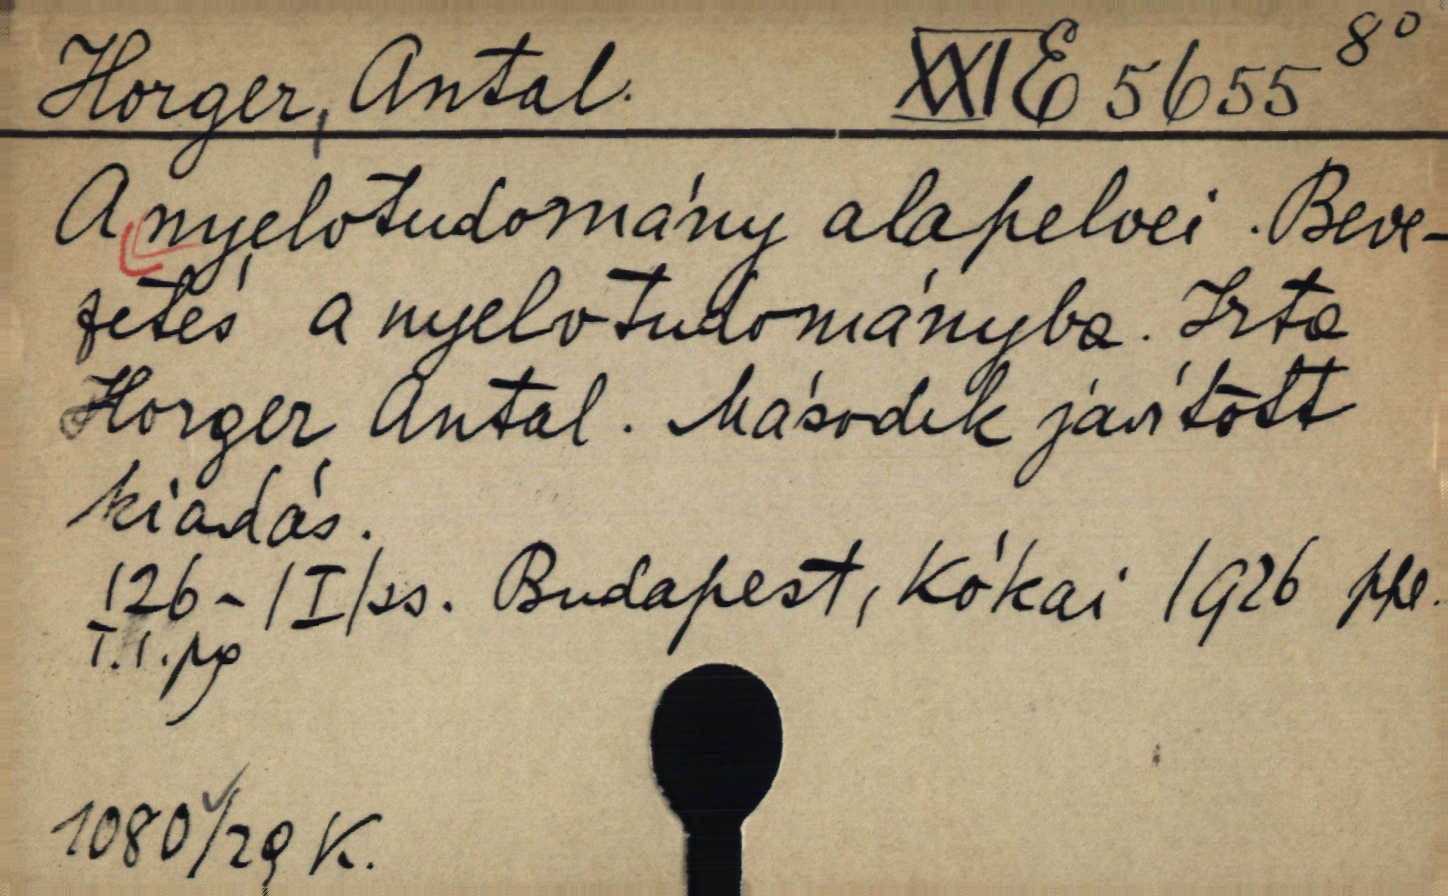 Horger, Antal. XXI E 5655 8°
A nyelvtudomány alapelvei. Beve-
zetés a nyelvtudományba. Irta
Horger Antal. Második javított
kiadás.
126-/I/ss. Budapest, Kókai 1926 ppe.
T.1.pg
1080/29 K.